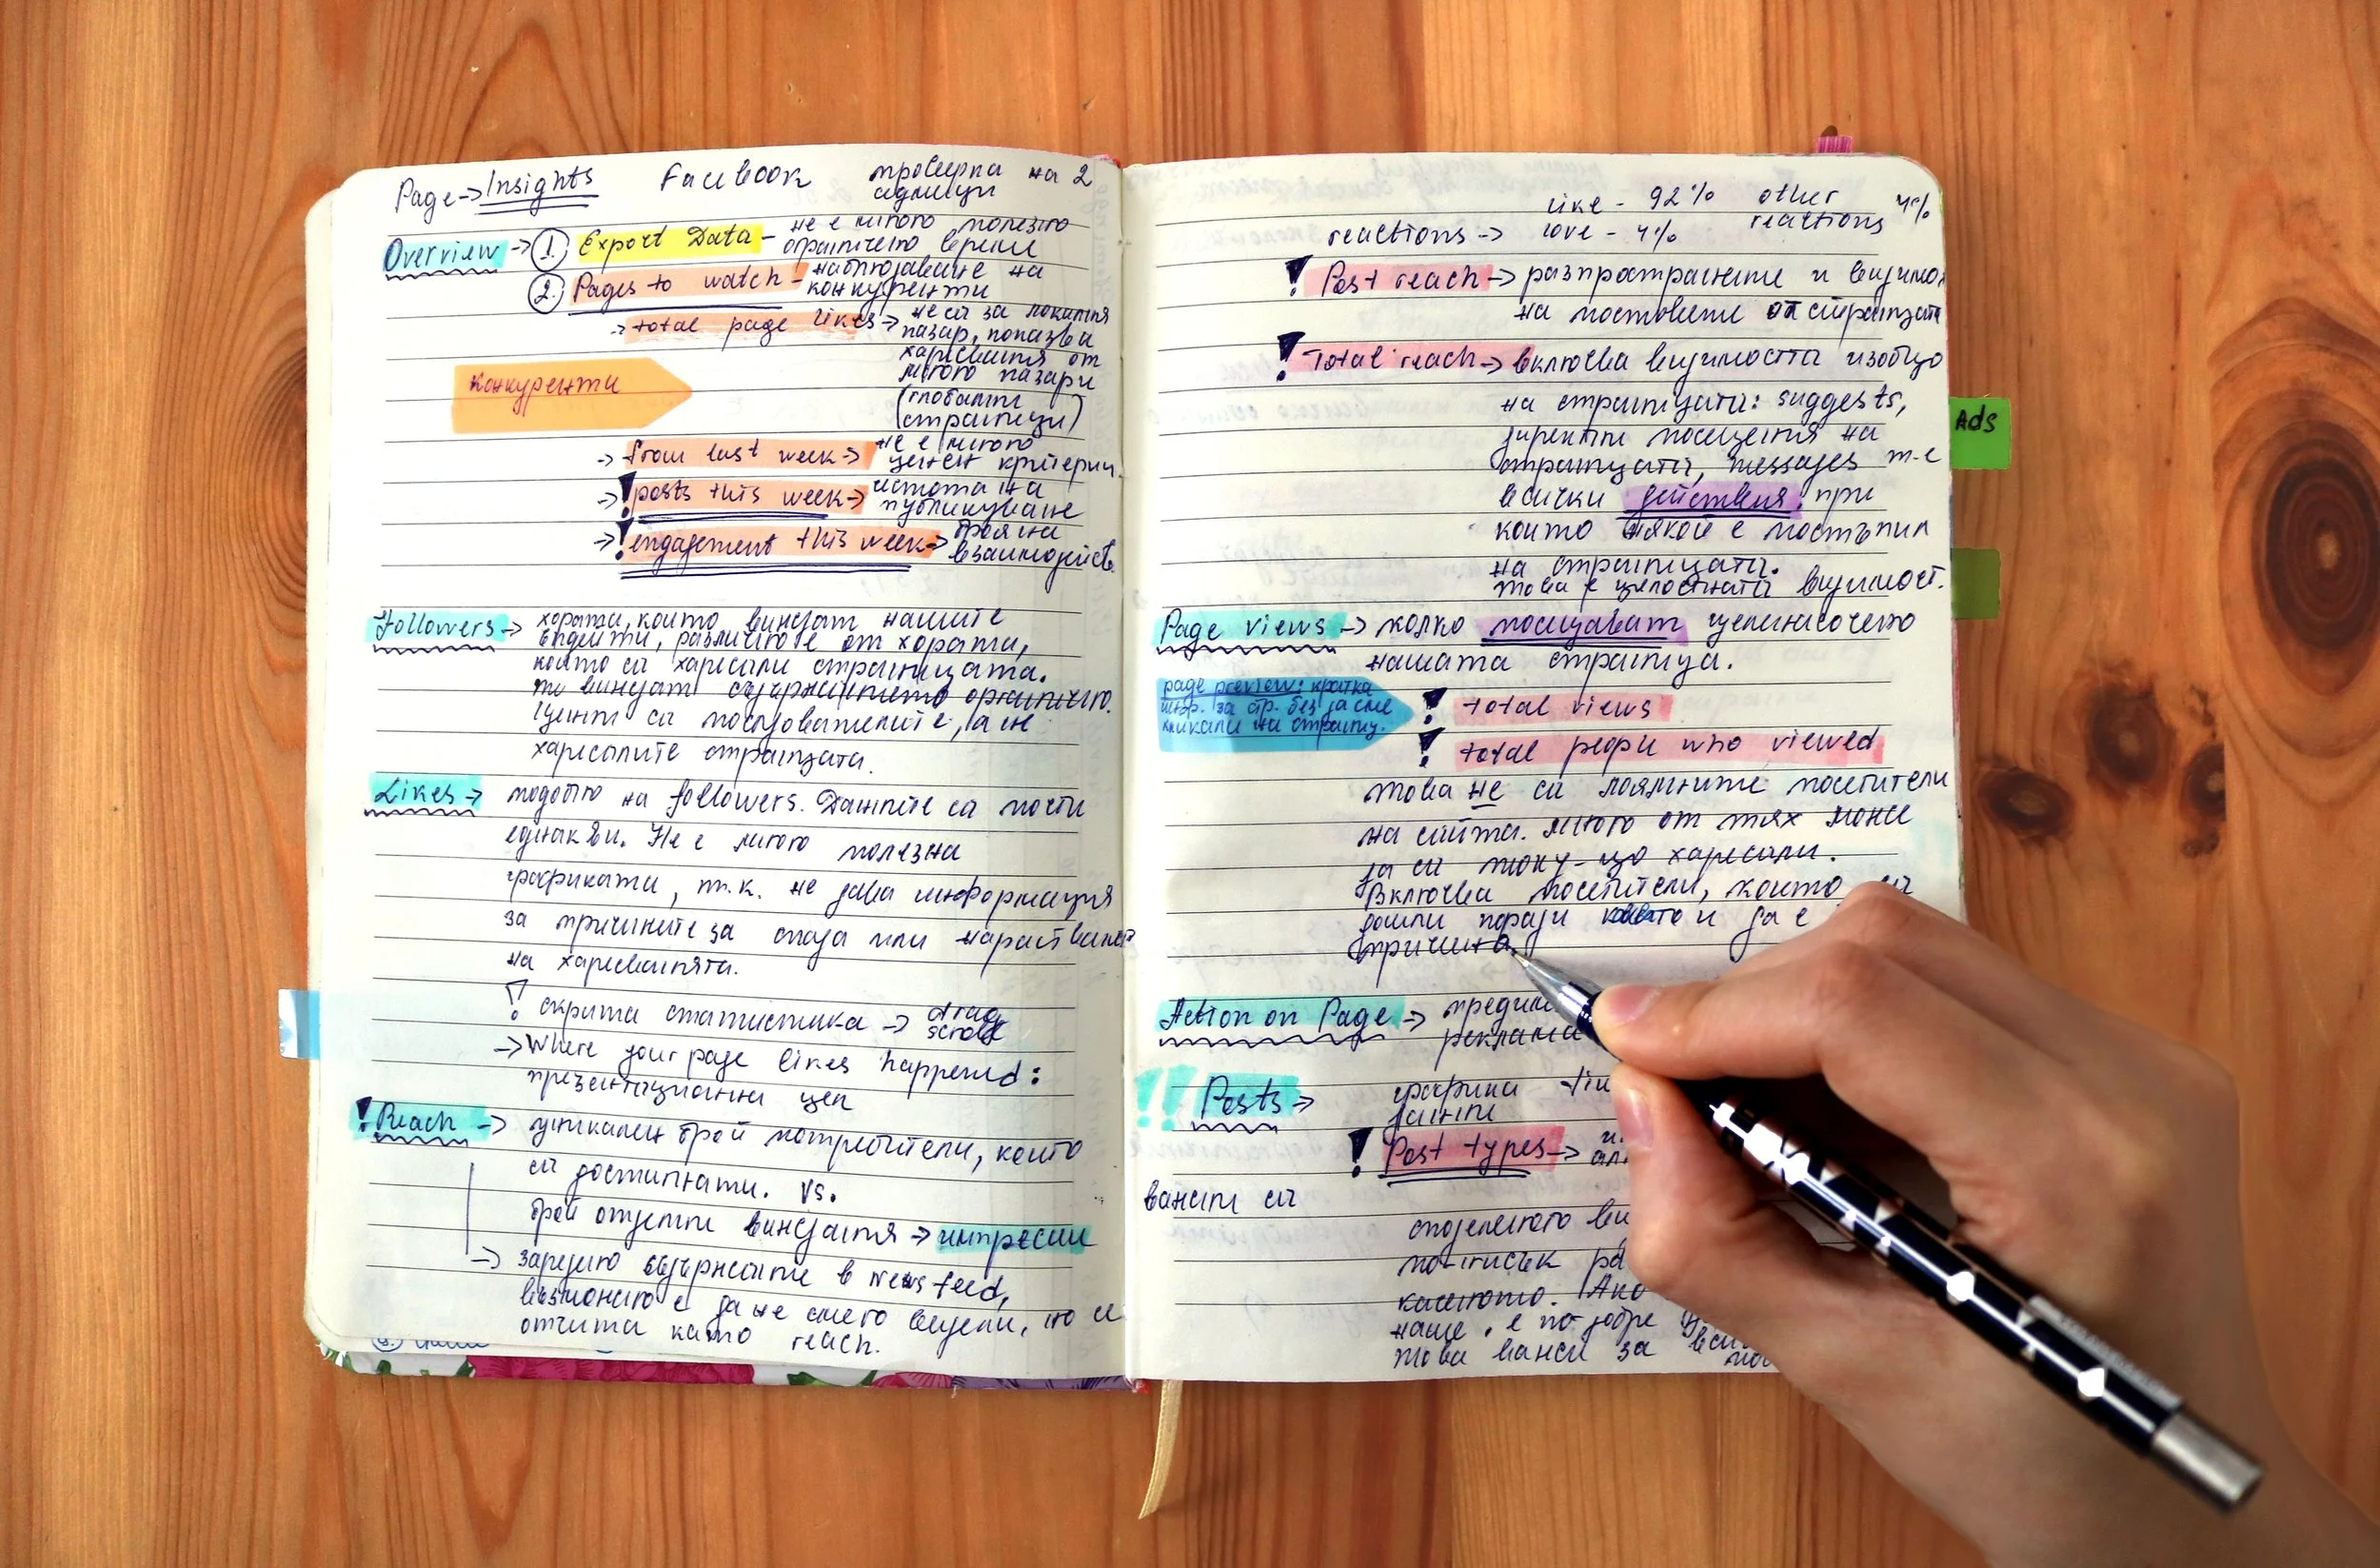 Page → Insights Facebook проверка на 2
седмици
Overview → 1. Export Data – не е много полезно
органичено време
2. Pages to watch – наблюдаване на
конкуренти
→ total page likes → не са за локалния
пазар, показва
харесвания от
много пазари
(глобални
страници)
конкуренти
→ from last week → не е много
ценен критерий
→ ! posts this week → честота на
публикуване
→ ! engagement this week → броя на
взаимодейств.
Followers → хората, които виждат нашите
ъпдейти, различно е от хората,
които са харесали страницата.
те виждат съдържанието органично.
Ценни са последователите, а не
харесалите страницата.
Likes → подобно на followers. Данните са почти
еднакви. Не е много полезна
графиката, т.к. не дава информация
за причините за спада или нарастването
на харесванията.
! скрита статистика → drag
scroll
→ Where your page likes happened:
презентационна цел
! Reach → уникален брой потребители, които
са достигнати. vs.
брой отделни виждания → импресии
→ заредено съдържание в News feed,
възможно е да не сме го видели, но се
отчита като reach.
like - 92% other 4%
reactions → love - 4% reactions
! Post reach → разпространение и видимо
на постовете от страницата
! Total reach → включва видимостта изобщо
на страницата: suggests,
директни посещения на
страницата, messages т.е
всички действия, при
които някой е постъпил
на страницата.
това е цялостната видимост.
Page views → колко посещават целенасочено
нашата страница.
page preview: кратка
инф. за стр. без да сме
кликали на страниц.
! total views
! total people who viewed
това не са лоялните посетители
на сайта. много от тях може
да са току-що харесали.
Включва посетители, които са
дошли поради каквато и да е
причина.
Action on Page →
реклама
!! Posts → графика
данни
! Post types →
ванет са
споделено
по-нисък
качеството. Ако
наше, е по-добре
това важи за